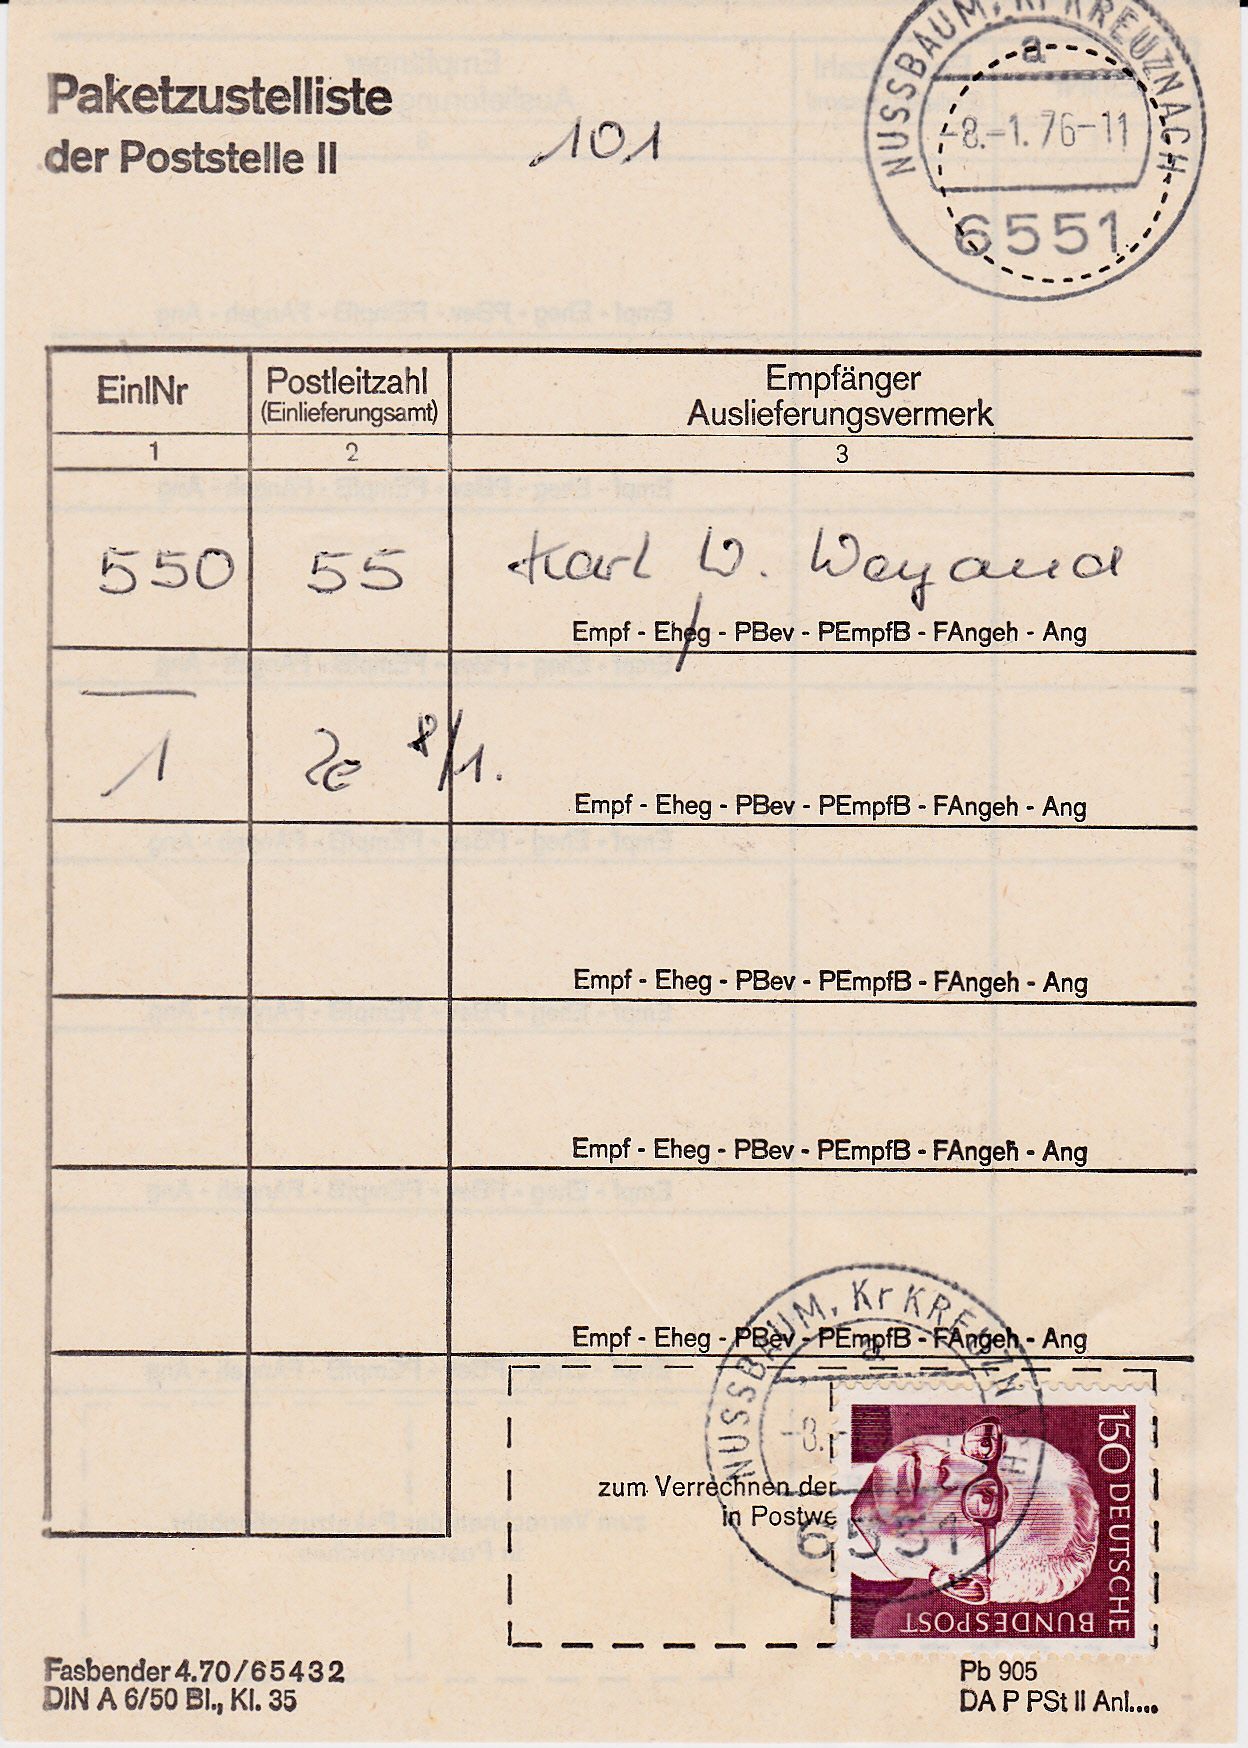 Paketzustelliste
der Poststelle II
101
NUSSBAUM, Kr KREUZNACH
a
-8.-1.76-11
6551
EinlNr
Postleitzahl
(Einlieferungsamt)
Empfänger
Auslieferungsvermerk
1 2 3
550 55 Karl W. Weyand
Empf - Eheg - PBev - PEmpfB - FAngeh - Ang
1 8/1.
Empf - Eheg - PBev - PEmpfB - FAngeh - Ang
Empf - Eheg - PBev - PEmpfB - FAngeh - Ang
Empf - Eheg - PBev - PEmpfB - FAngeh - Ang
Empf - Eheg - PBev - PEmpfB - FAngeh - Ang
NUSSBAUM, Kr KREUZNACH
a
-8.-
6551
zum Verrechnen der
in Postwe
150 DEUTSCHE
BUNDESPOST
Fasbender 4.70/65432
DIN A 6/50 Bl., Kl. 35
Pb 905
DA P PSt II Anl....